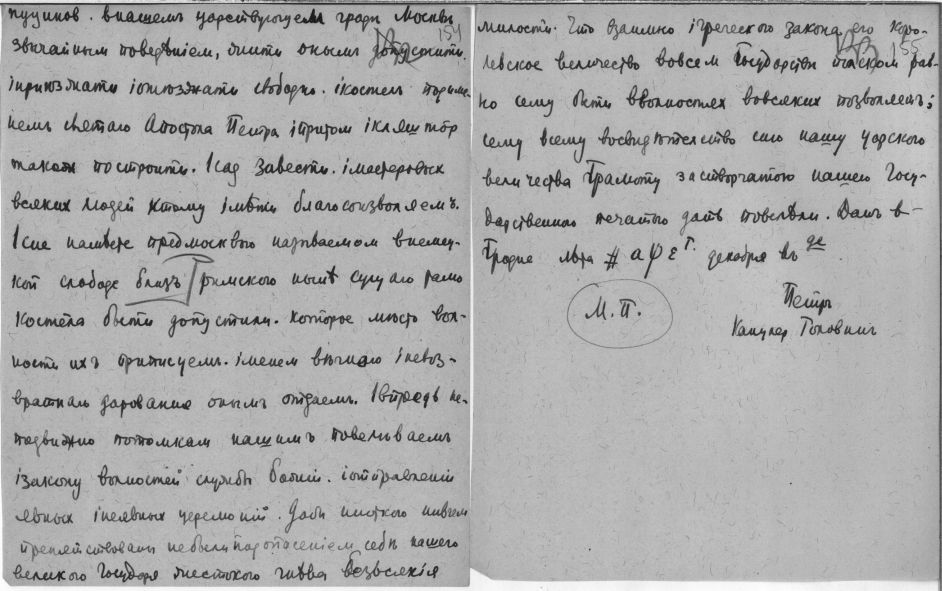 пуцинов. внашемъ царствующемъ граде Москвы
154
звычайнымъ поведениемъ, жити онымъ допустити.
приезжати отезжати свободно. iкостелъ подиме-
немъ святаго Апостола Петра iпритом iкляштор
такожъ построити. Iсад завести. iмастеровых
всяких людей ктому iмѣти благосоизволяемъ.
Iсие намѣсте предмосквою называемом внемец-
кой слободе близъ римского нынѣ сущаго
костела быти допустили. которое мѣсто вол-
ности ихъ приписуемъ. iменем вѣчнаго iневоз-
вратнаго дарования онымъ отдаемъ. Iвпредь не-
подвижно потомкам нашимъ повелѣваемъ
iзакону волностей службы божiй. iотправленiй
явных iнеявных церемонiй. Дабы никаково нивчем
препятствованы небыли подопасенiем себѣ нашего
великого Государя жестокого гнѣва безвсякiя
155
милости. Что взаимно iгреческого закона его Коро-
левское величество вовсем Государстве полском рав-
но сему быти вволностях вовсяких позволяетъ;
сему всему восвидѣтелство сию нашу царского
величества Грамоту застворчатою нашею Госу-
дарственною печатью дать повелѣли. Данъ в-
Гродне лѣта #аѱеᵍ. декабря въ де
М. П.
Петръ
Канцлер Головинъ